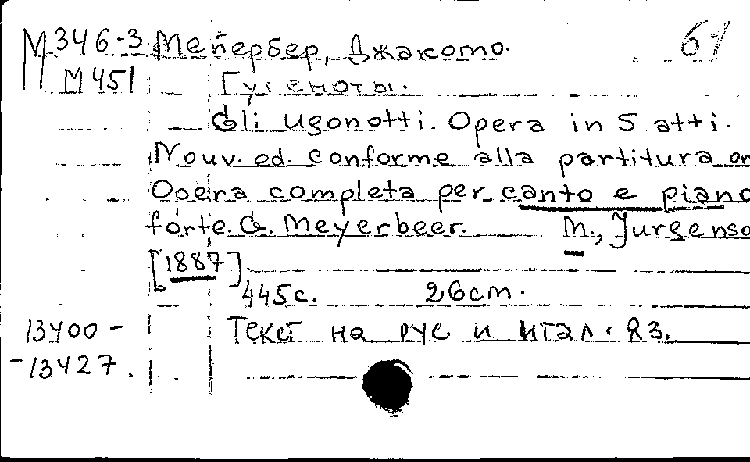 М346-3 Мейербер, Джакомо. 61
М451 Гугеноты.
Gli Ugonotti. Opera in 5 atti.
Nouv. ed. conforme alla partitura or
Opera completa per canto e piano
forte. G. Meyerbeer. M., Jurgenso
[1887]
445с. 26cm.
13400 - Текст на рус и итал. яз.
-13427.